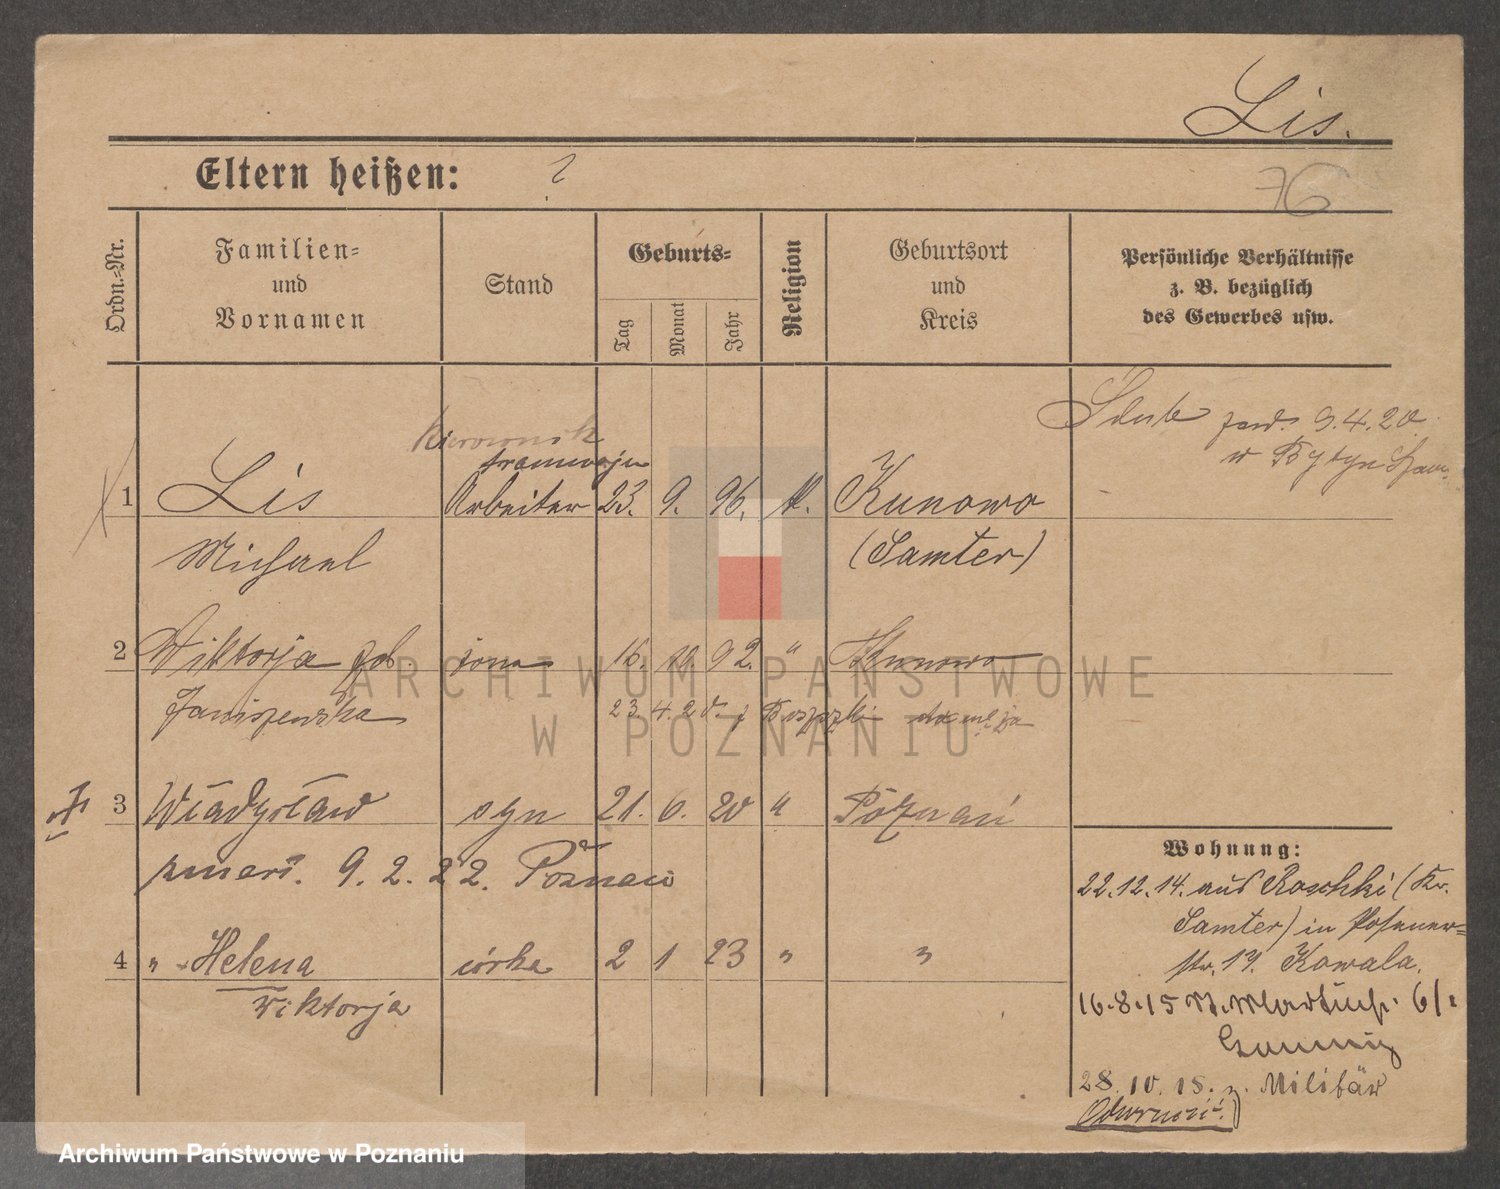 Lis.
Eltern heißen: ?
76
Ordn.=Nr.
Familien=
und
Vornamen
Stand
Geburts=
Tag
Monat
Jahr
Religion
Geburtsort
und
Kreis
Persönliche Verhältnisse
z. B. bezüglich
des Gewerbes usw.
Ślub 9.4.20
w Bytyn
tramwaju
1 Lis Arbeiter 23. 9. 96. K. Kunowo
Michael (Samter)
2 Wiktorja żona 16. 10. 92. " Kunowo
Janiszewska 23. 4. 20.
3 Władysław syn 21. 6. 20 " Poznań
zmarł. 9. 2. 22. Poznań
4 " Helena córka 2 1 23 " "
Wiktorja
Wohnung:
22.12.14. aus Roschki (Kr.
Samter) in Posener=
str. 17. Kowala.
16.8.15 6/
28.10.15. z. Militär
Odwrócić!
ARCHIWUM PAŃSTWOWE
W POZNANIU
Archiwum Państwowe w Poznaniu